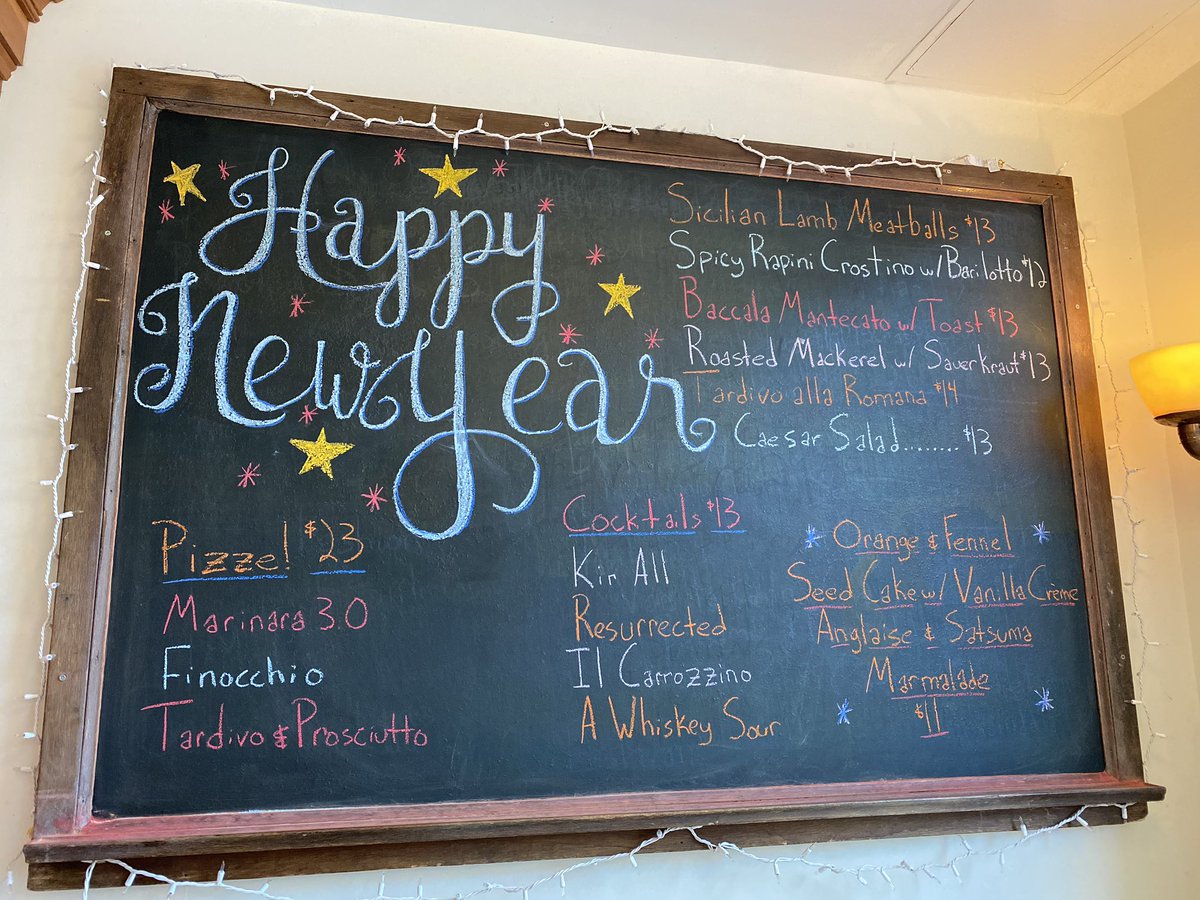 Happy
New Year
Sicilian Lamb Meatballs $13
Spicy Rapini Crostino w/ Barilotto $12
Baccala Mantecato w/ Toast $13
Roasted Mackerel w/ Sauerkraut $13
Tardivo alla Romana $14
Caesar Salad........ $13
Pizze! $23
Marinara 3.0
Finocchio
Tardivo & Prosciutto
Cocktails $13
Kir All
Resurrected
Il Carrozzino
A Whiskey Sour
Orange & Fennel
Seed Cake w/ Vanilla Crème
Anglaise & Satsuma
Marmalade
$11